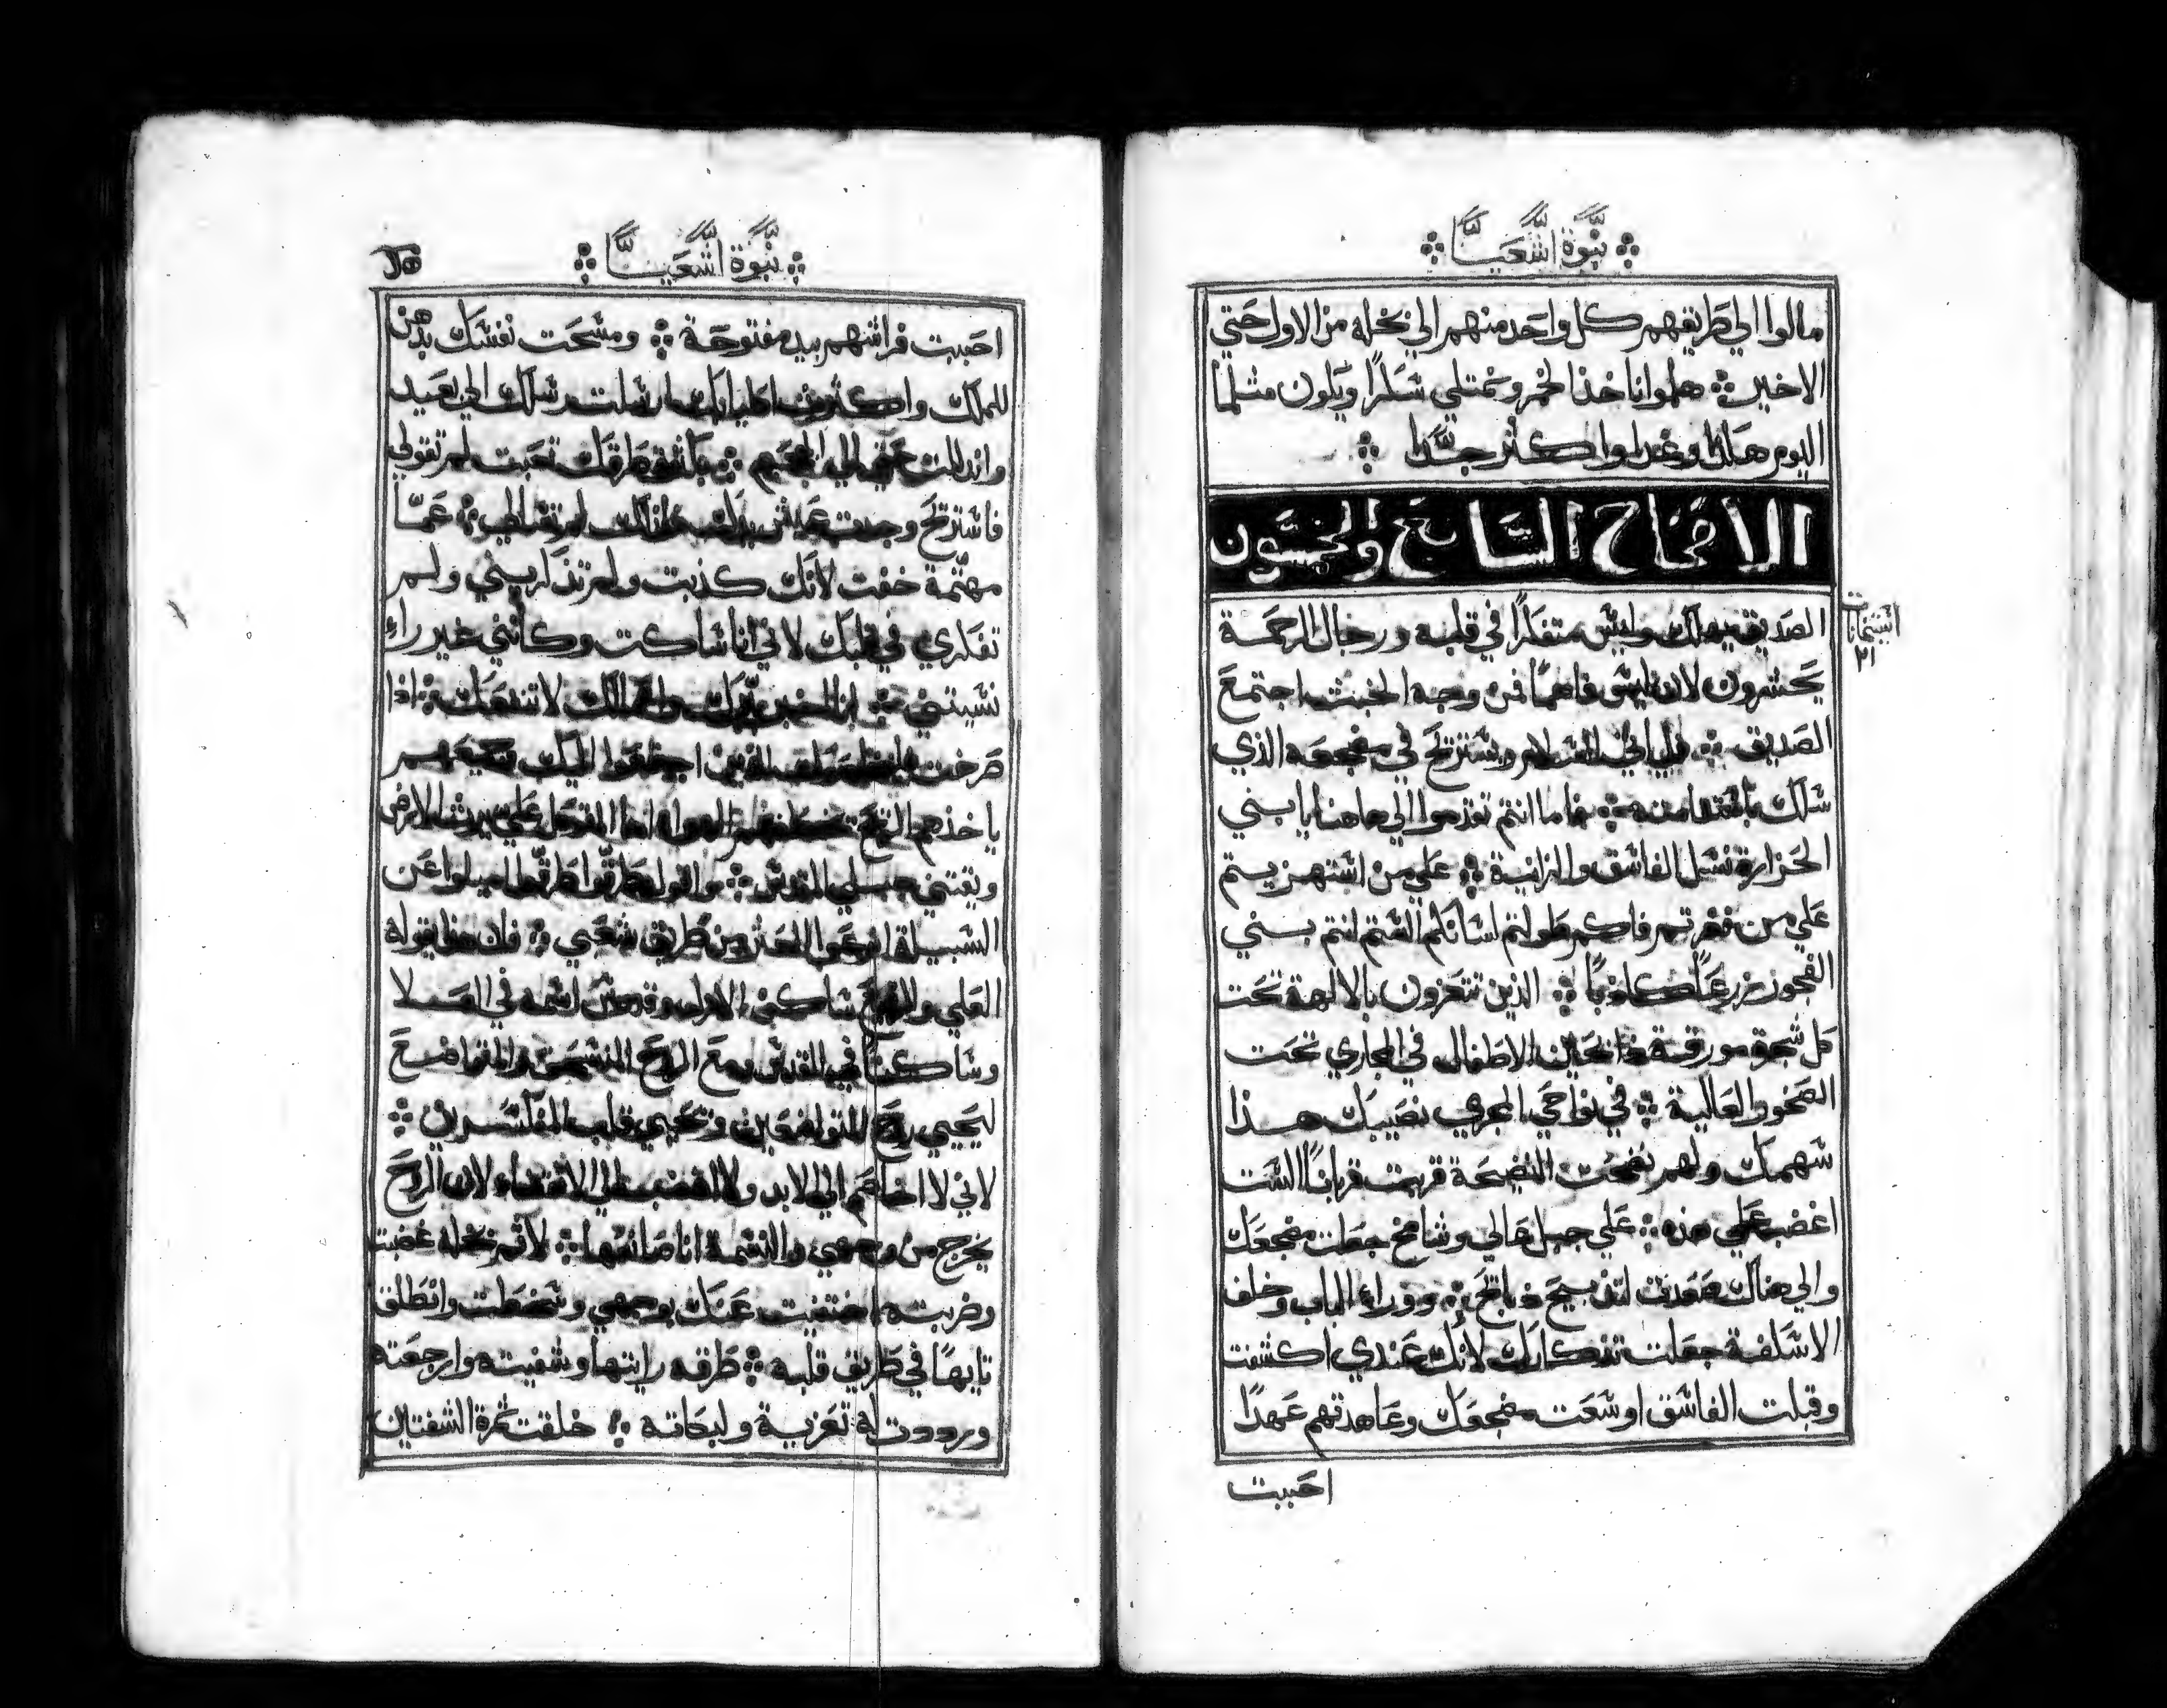 نبوة اشعيا
مالوا الي طريقهم كل واحد منهم الي بخله من الاول حتي
الاخير هلموا ناخذ الخمر ونمتلي سكرًا ويكون مثلما
اليوم هكذا وغدا واكثر جدًا
الاصحاح السابع والخمسون
الصديق يهلك وليس متفكرًا في قلبه ورجال الرحمة
يحشرون لان ليس فاهمًا فمن وجه الخبث اجتمع
الصديق السلام ويستريح في مضجعه الذي
سلك باستقامته فاما انتم تقدموا الي هاهنا يا بني
الحزارة نسل الفاسق والزانية علي من استهزيتم
علي من فغرتم فاكم طولتم لسانكم الستم انتم بني
الفجور زرعًا كاذبًا الذين تتعزون بالالهة تحت
كل شجرة مورقة ذابحين الاطفال في المجاري تحت
الصخور العالية في نواحي المجري نصيبك هذا
سهمك ولهم نضحت النضيحة قربت قربانًا الست
اغضب علي هذه علي جبل عالي وشامخ جعلت مضجعك
والي هناك صعدت لتذبيح ذبايح ووراء الباب وخلف
الاسكفة جعلت تذكارك لانك عندي اكشفت
وقبلت الفاسق اوسعت مضجعك وعاهدتهم عهدًا
احببت
نبوة اشعيا
احببت فراشهم بيد مفتوحة ومسحت نفسك بدهن
للملك واكثرت ارسلت رسلك الي بعيد
واتذللت حتي الي الجحيم بكثرة طرقك تعبت لم تقولي
فاستريح وجدت عيش يدك لذلك لم تطلب عما
مهتمة خفت لانك كذبت ولم تذكريني ولم
تفكري في قلبك لاني انا ساكت وكانني غير راء
نسيتني انا اخبر ببرك واعمالك لا تنفعك اذا
صرخت فلتخلصك الذين اجتمعوا اليك وجميعهم
ياخذهم الريح الهواء اما المتوكل علي يرث الارض
ويقتني جبلي المقدس واقول طرقوا طرقوا اميلوا عن
السبيل ارفعوا العثر من طريق شعبي فان هذا يقوله
العلي والرفيع ساكن الابد وقدوس اسمه في العلا
وساكنًا في القدس ومع الروح المنسحق والمتواضع
ليحيي روح المتواضعين وتحيي قلب المنكسرين
لاني لا اخاصم الي الابد ولا اغضب الي الانقضاء لان الروح
يخرج من وجهي والنسمة انا صانعها لاثم بخله غضبت
وضربته اختفيت عنك بوجهي وسخطت وانطلق
تايهًا في طريق قلبه طرقه رايتها وشفيته وارجعته
ورددت له تعزية ولبكاته خلقت ثمرة الشفتين